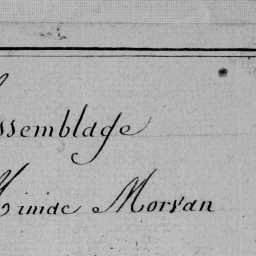 ssemblage
Miniac Morvan